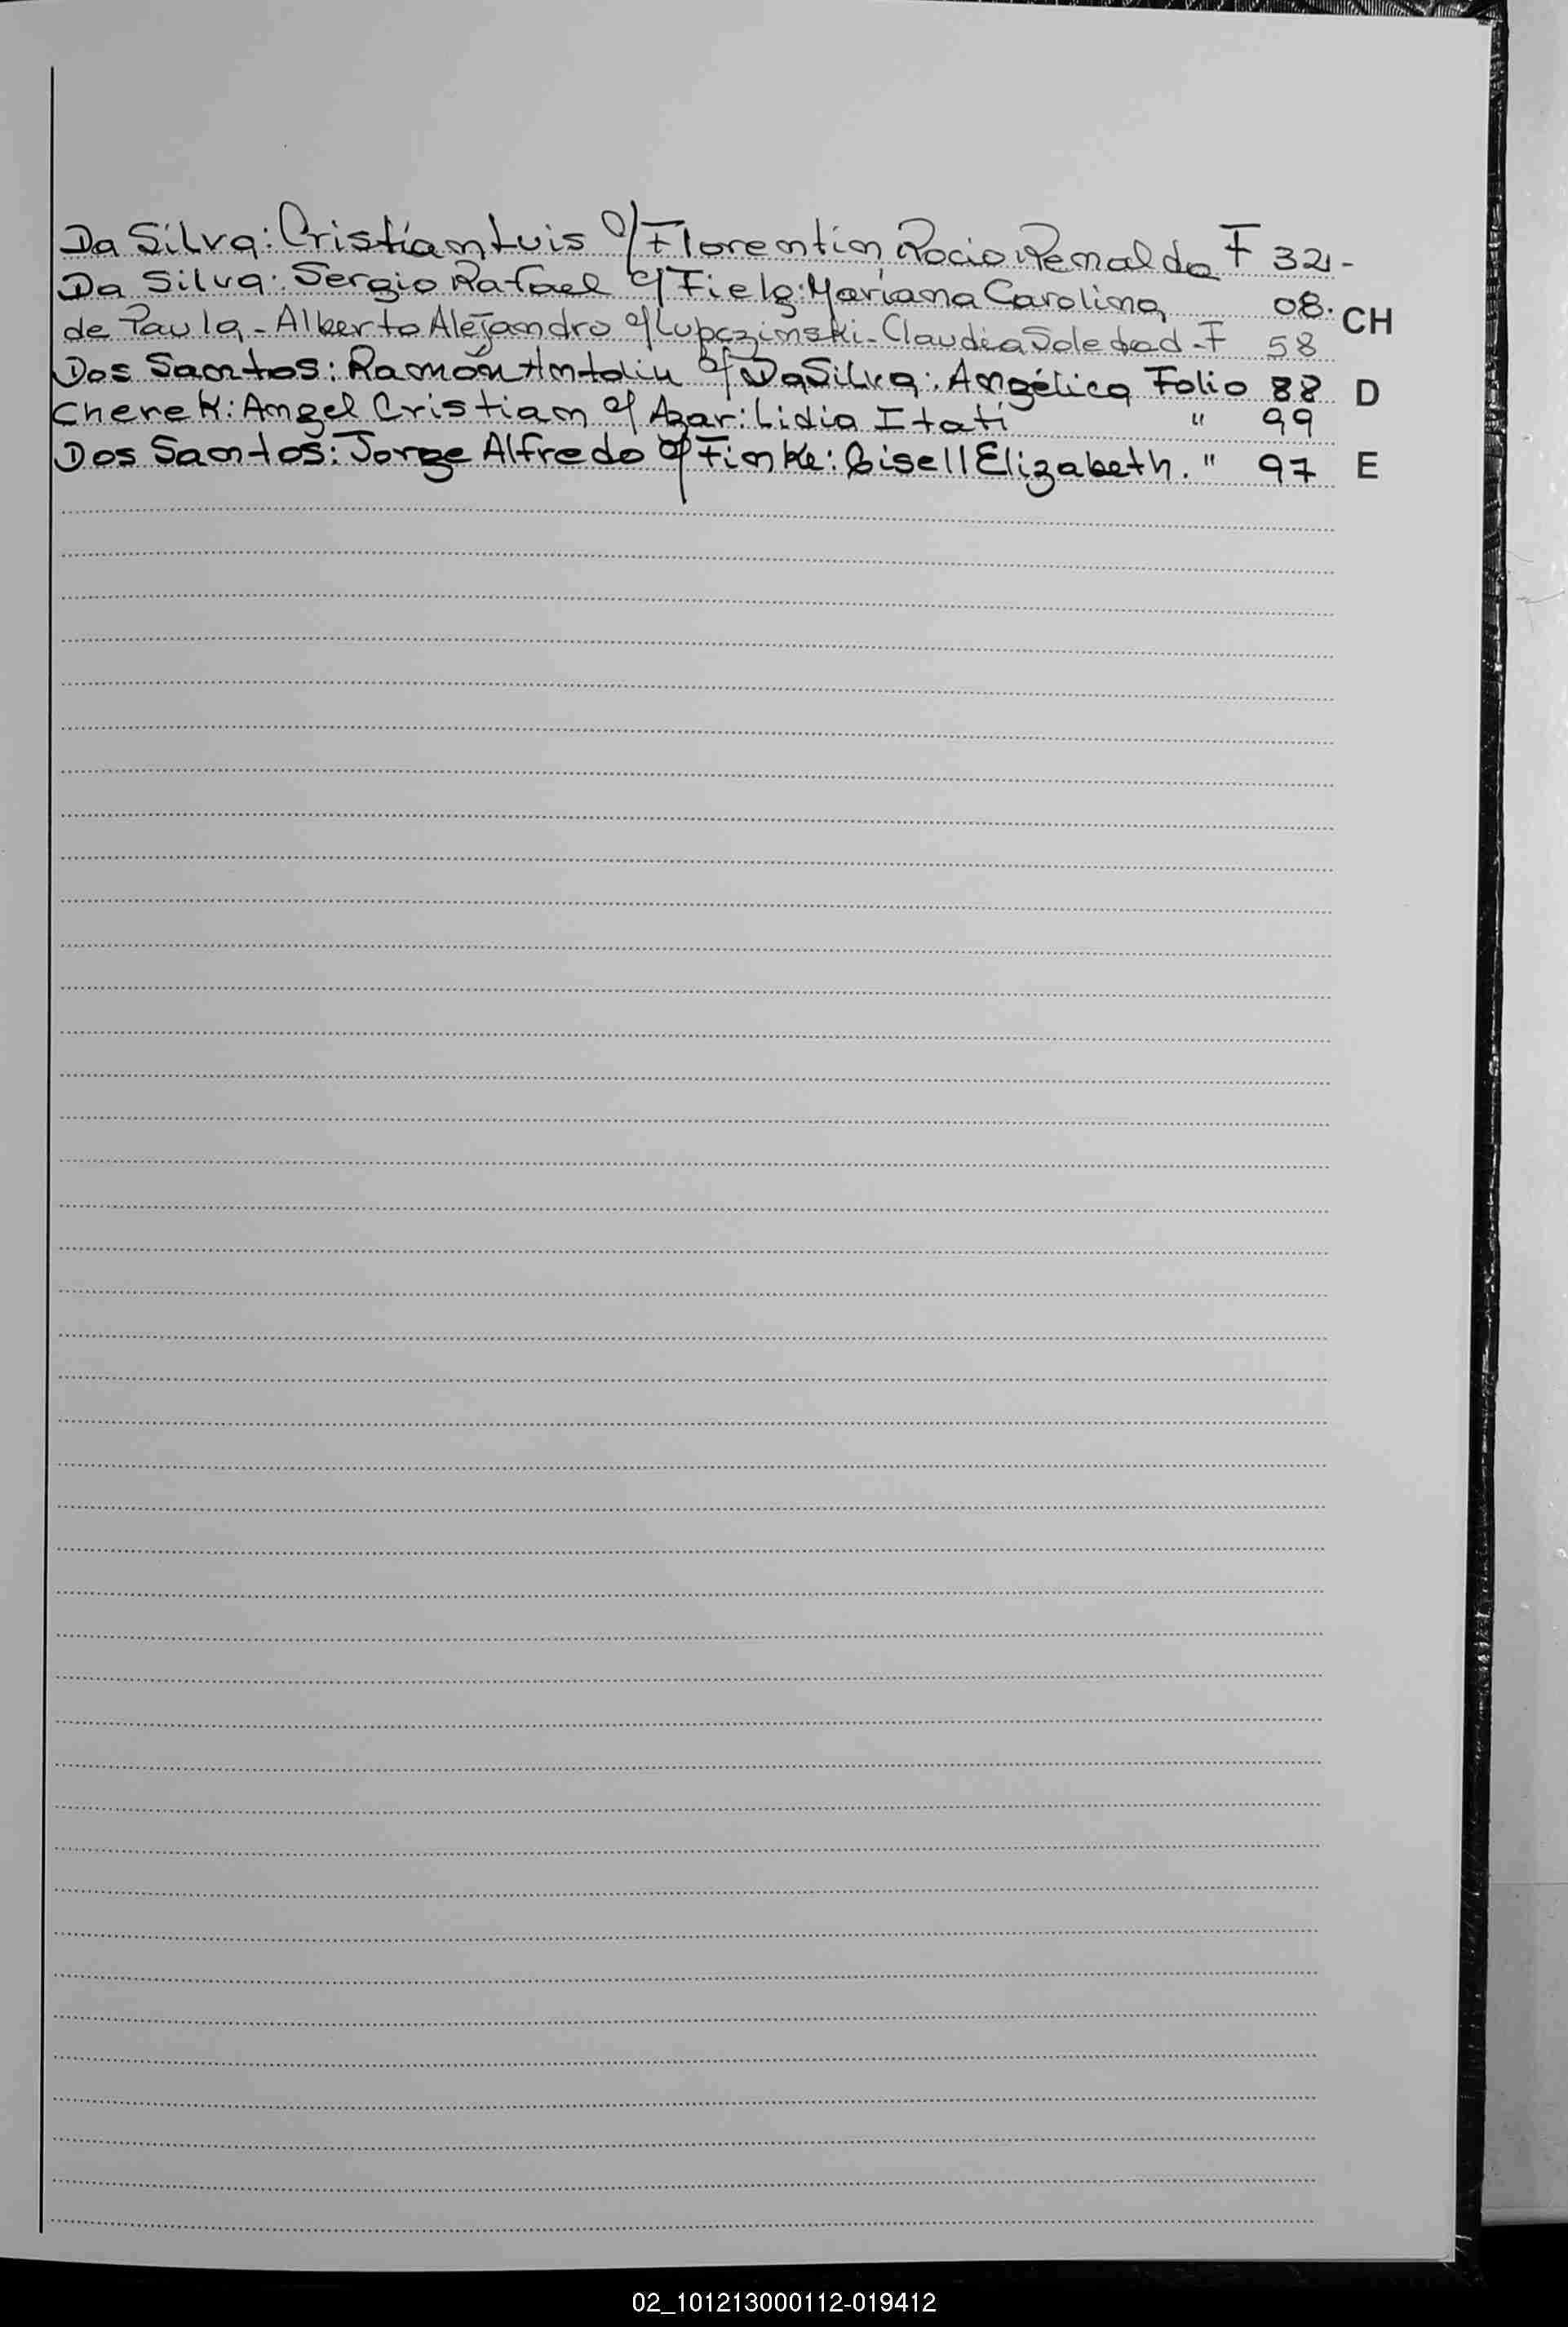 Da Silva: Cristian Luis c/ Florentin Rocio Remalda F 32-
Da Silva: Sergio Rafael c/ Fielg: Mariana Carolina 08.
CH
de Paula - Alberto Alejandro c/ Lupczinski - Claudia Soledad - F 58
Dos Santos: Ramón Antolin c/ Da Silva: Angélica Folio 88
D
Cherek: Angel Cristian c/ Azar: Lidia Itati " 99
Dos Santos: Jorge Alfredo c/ Finke: Gisell Elizabeth. " 97
E
02_101213000112-019412